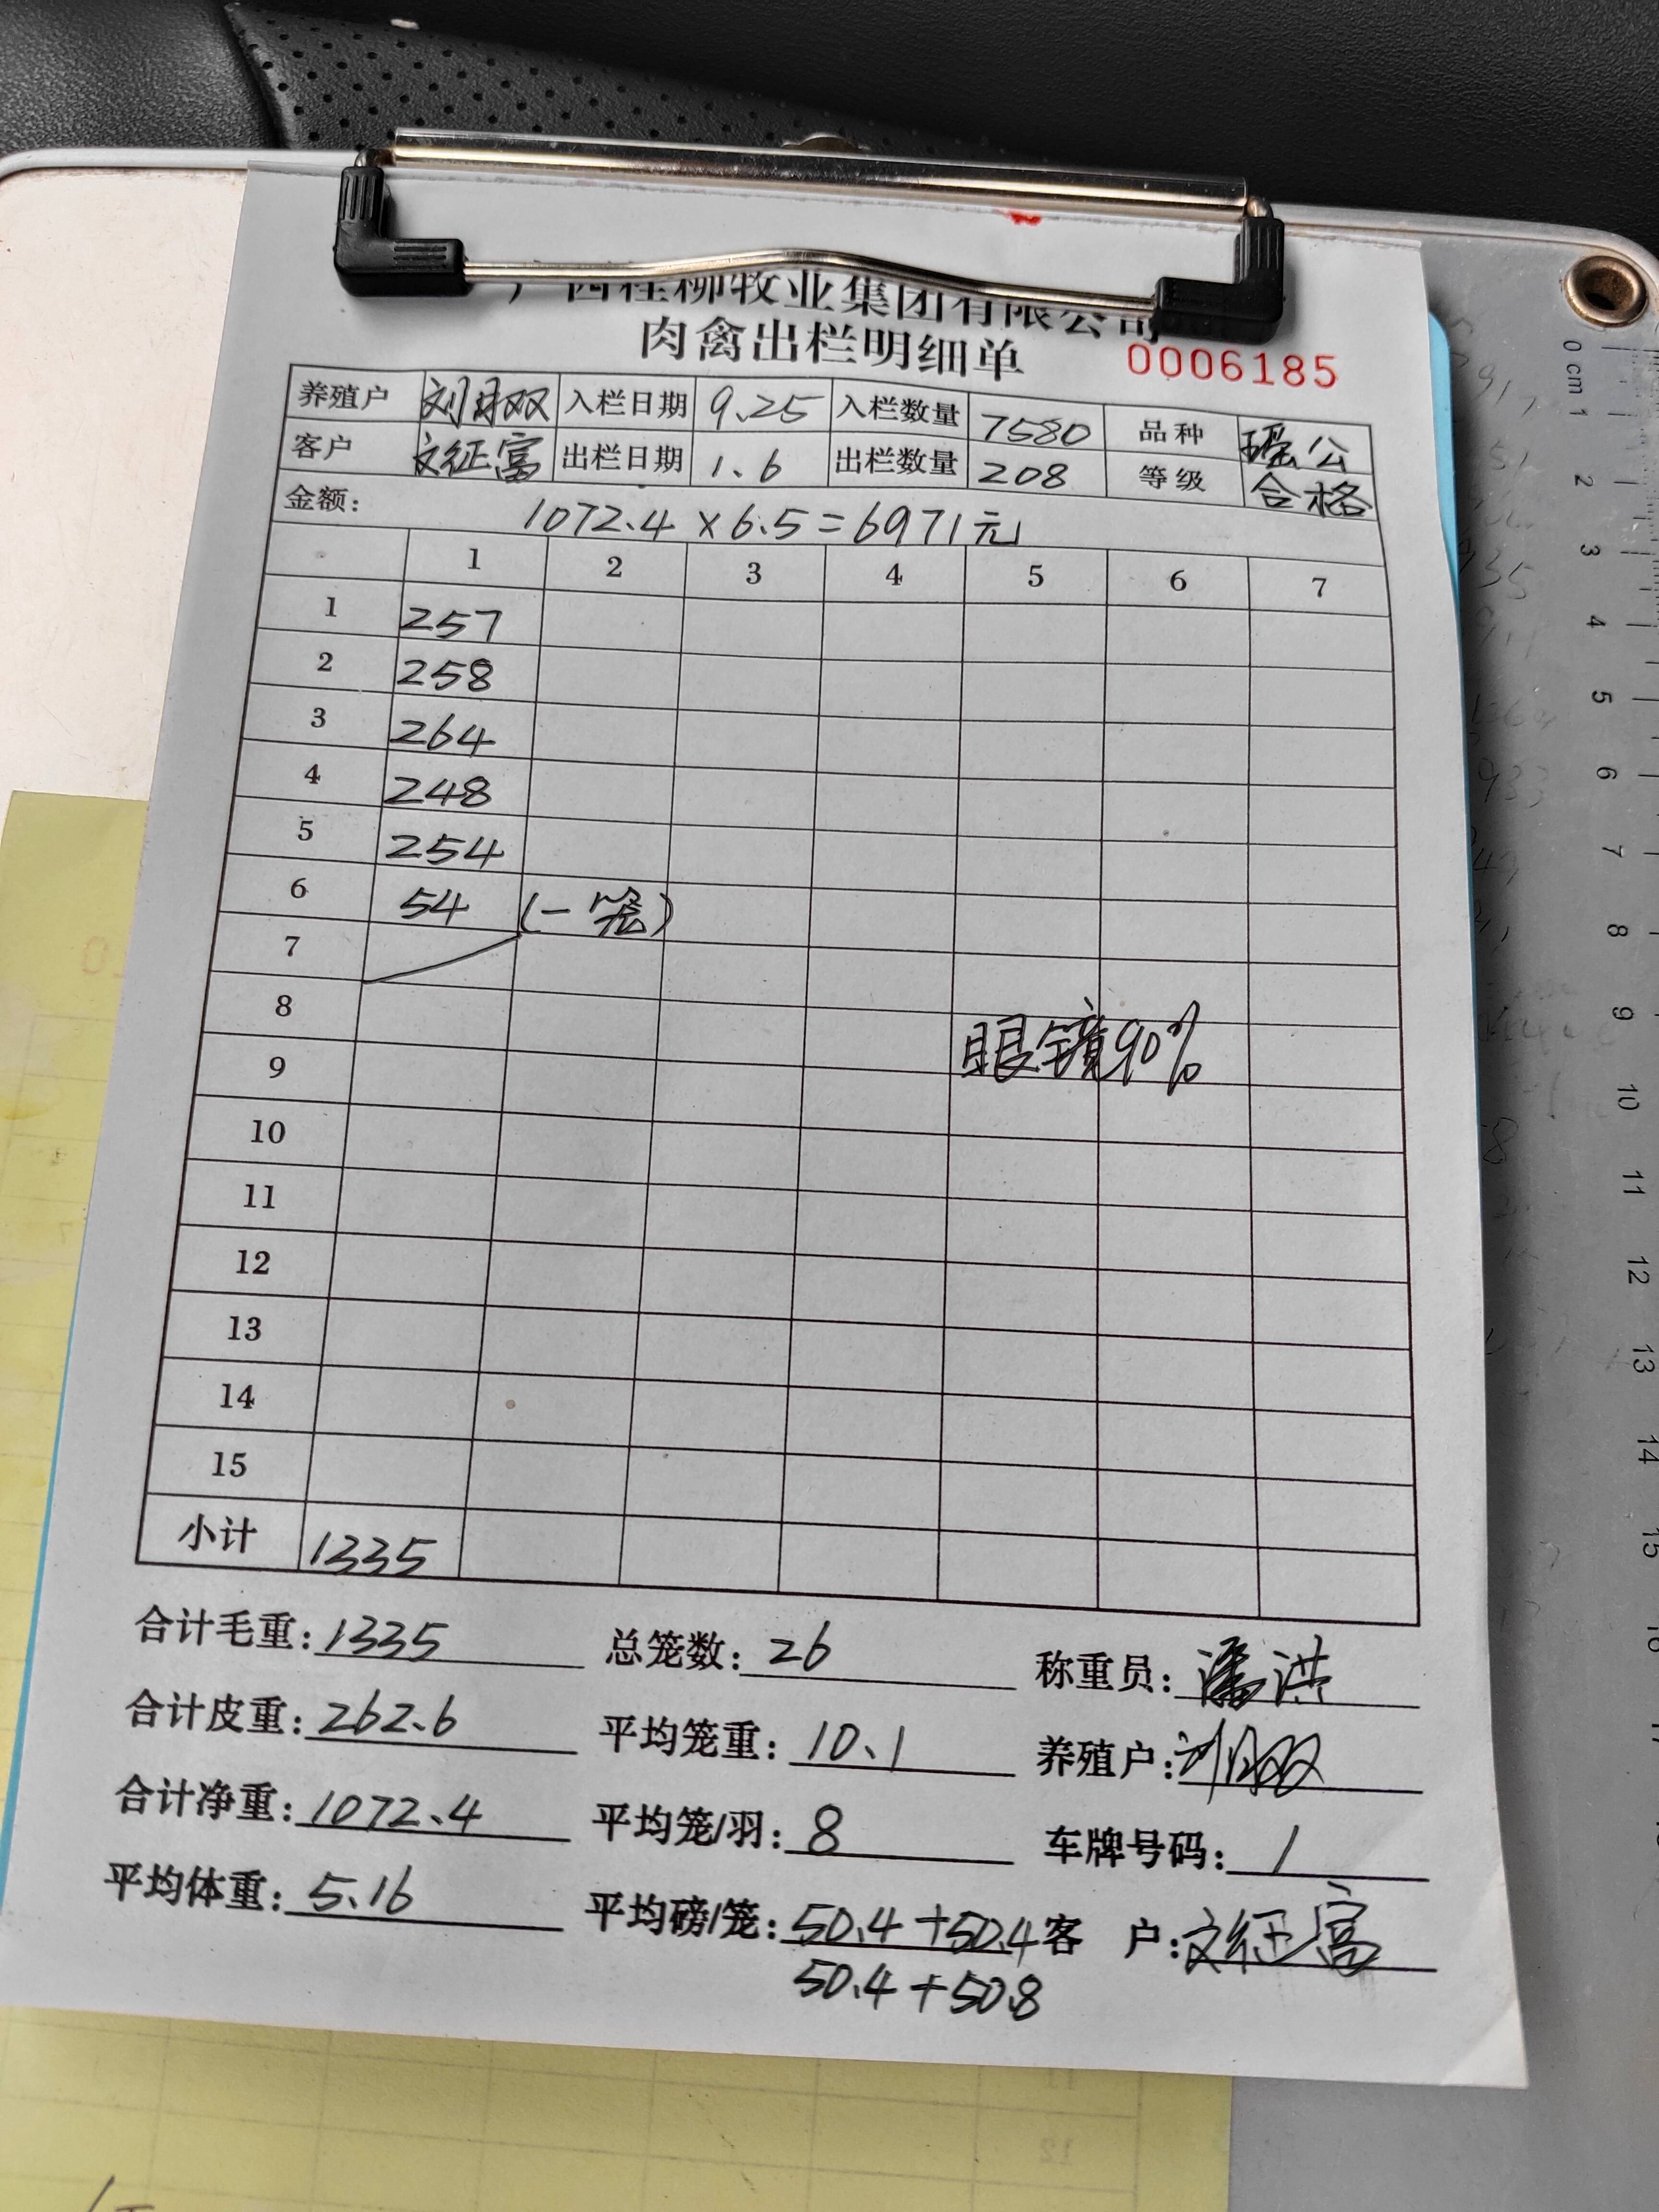 广西桂柳牧业集团有限公司
肉禽出栏明细单 0006185
养殖户 刘月双 入栏日期 9.25 入栏数量 7580 品种 瑶公
客户 文征富 出栏日期 1.6 出栏数量 208 等级 合格
金额: 1072.4 × 6.5 = 6971元
1 2 3 4 5 6 7
1 257
2 258
3 264
4 248
5 254
6 54 (一笼)
7
8
眼镜90%
9
10
11
12
13
14
15
小计 1335
合计毛重: 1335 总笼数: 26 称重员: 潘洪
合计皮重: 262.6 平均笼重: 10.1 养殖户: 刘月双
合计净重: 1072.4 平均笼/羽: 8 车牌号码: 1
平均体重: 5.16 平均磅/笼: 50.4+50.4 客 户: 文征富
50.4+50.8
0 cm 1
2
3
4
5
6
7
8
9
10
11
12
13
14
15